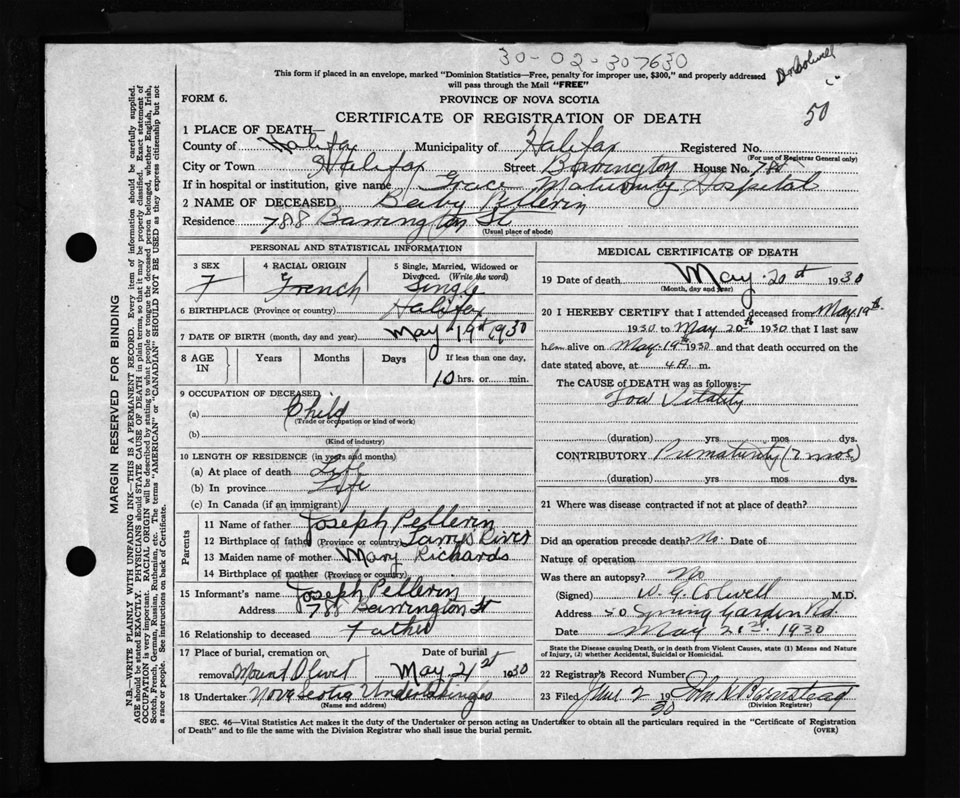 30-02-307630
Dr Colwell
This form if placed in an envelope, marked "Dominion Statistics—Free, penalty for improper use, $300," and properly addressed
will pass through the Mail "FREE"
50
FORM 6.
PROVINCE OF NOVA SCOTIA
CERTIFICATE OF REGISTRATION OF DEATH
1 PLACE OF DEATH—
County of Halifax Municipality of Halifax Registered No.
(For use of Registrar General only)
City or Town Halifax Street Barrington House No. 788
If in hospital or institution, give name Grace Maternity Hospital
2 NAME OF DECEASED Baby Pellerin
Residence 788 Barrington St
(Usual place of abode)
PERSONAL AND STATISTICAL INFORMATION
3 SEX F
4 RACIAL ORIGIN French
5 Single, Married, Widowed or Divorced. (Write the word) Single
6 BIRTHPLACE (Province or country) Halifax
7 DATE OF BIRTH (month, day and year) May 19th 1930
8 AGE IN Years Months Days If less than one day, 10 hrs. or min.
9 OCCUPATION OF DECEASED
(a) Child
(Trade or occupation or kind of work)
(b)
(Kind of industry)
10 LENGTH OF RESIDENCE (in years and months)
(a) At place of death Life
(b) In province Life
(c) In Canada (if an immigrant)
Parents
11 Name of father Joseph Pellerin
12 Birthplace of father (Province or country) River
13 Maiden name of mother Mary Richards
14 Birthplace of mother (Province or country)
15 Informant's name Joseph Pellerin
Address 788 Barrington St
16 Relationship to deceased Father
17 Place of burial, cremation or removal Mount Olivet Date of burial May 21st 1930
18 Undertaker Nova Scotia Undertaking Co
(Name and address)
MEDICAL CERTIFICATE OF DEATH
19 Date of death May 20th 1930
(Month, day and year)
20 I HEREBY CERTIFY that I attended deceased from May 19th
1930 to May 20th 1930 that I last saw
her alive on May 19th 1930 and that death occurred on the
date stated above, at 4 A. m.
The CAUSE OF DEATH was as follows:
Low Vitality
(duration) yrs mos dys.
CONTRIBUTORY Prematurity (7 mos)
(duration) yrs. mos. dys.
21 Where was disease contracted if not at place of death?
Did an operation precede death? No. Date of
Nature of operation
Was there an autopsy? No
(Signed) W. G. Colwell M.D.
Address 50 Spring Garden Rd.
Date May 20th 1930
State the Disease causing Death, or in death from Violent Causes, state (1) Means and Nature
of Injury, (2) whether Accidental, Suicidal or Homicidal.
22 Registrar's Record Number
23 Filed June 2 1930 John
(Division Registrar)
SEC. 46—Vital Statistics Act makes it the duty of the Undertaker or person acting as Undertaker to obtain all the particulars required in the "Certificate of Registration
of Death" and to file the same with the Division Registrar who shall issue the burial permit.
(OVER)
MARGIN RESERVED FOR BINDING
N.B.—WRITE PLAINLY WITH UNFADING INK—THIS IS A PERMANENT RECORD. Every item of information should be carefully supplied.
AGE should be stated EXACTLY. PHYSICIANS should STATE CAUSE OF DEATH in plain terms, so that it may be properly classified. Exact statement of
OCCUPATION is very important. RACIAL ORIGIN will be described by stating to what people or tongue the deceased person belonged, whether English, Irish,
Scotch, French, German, Russian, Ruthenian, etc. The terms "AMERICAN" or "CANADIAN" SHOULD NOT BE USED as they express citizenship but not
a race or people. See instructions on back of Certificate.